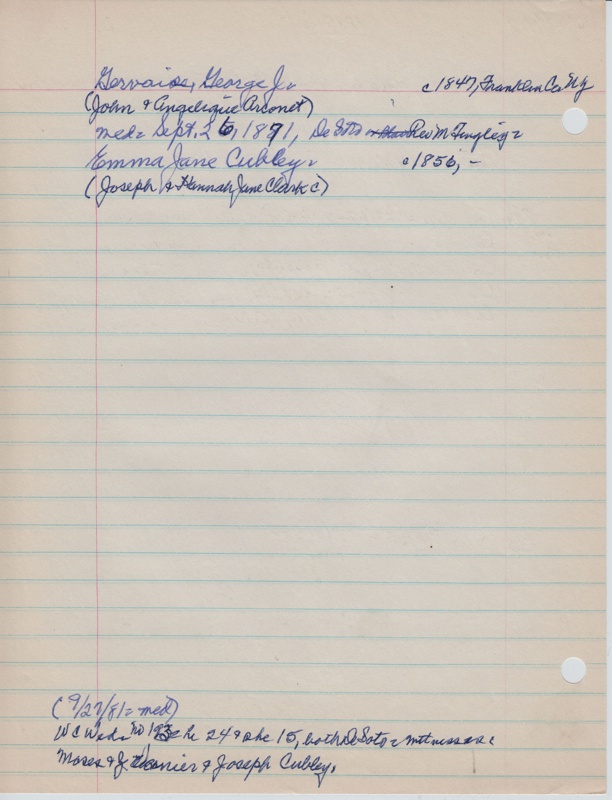 Gervaise, George J. c 1847, Franklin Co NY
(John & Angelique Arconet)
med= Sept. 26, 1871, DeSoto Rev M Tingley=
Emma Jane Cubley= c 1856, -
(Joseph & Hannah Jane Clark C)
(9/27/81= med)
WC Weds No 193= he 24 & she 15, both DeSoto= witnesses:
Moses & J. & Joseph Cubley.